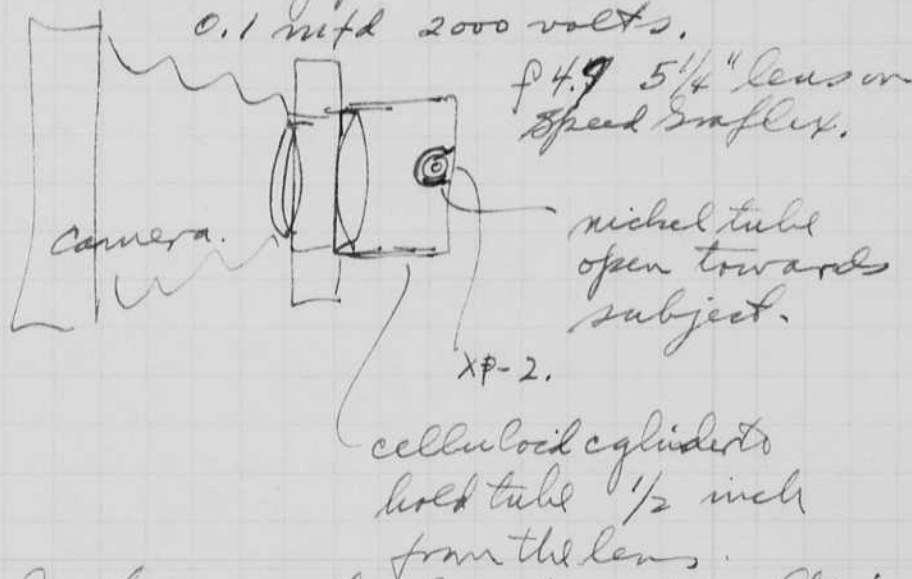 0.1 mfd 2000 volts.
f 4.9 5 1/4" lens on
Speed Graflex.
camera.
nickel tube
open towards
subject.
XP-2.
celluloid cylinder to
hold tube 1/2 inch
from the lens.